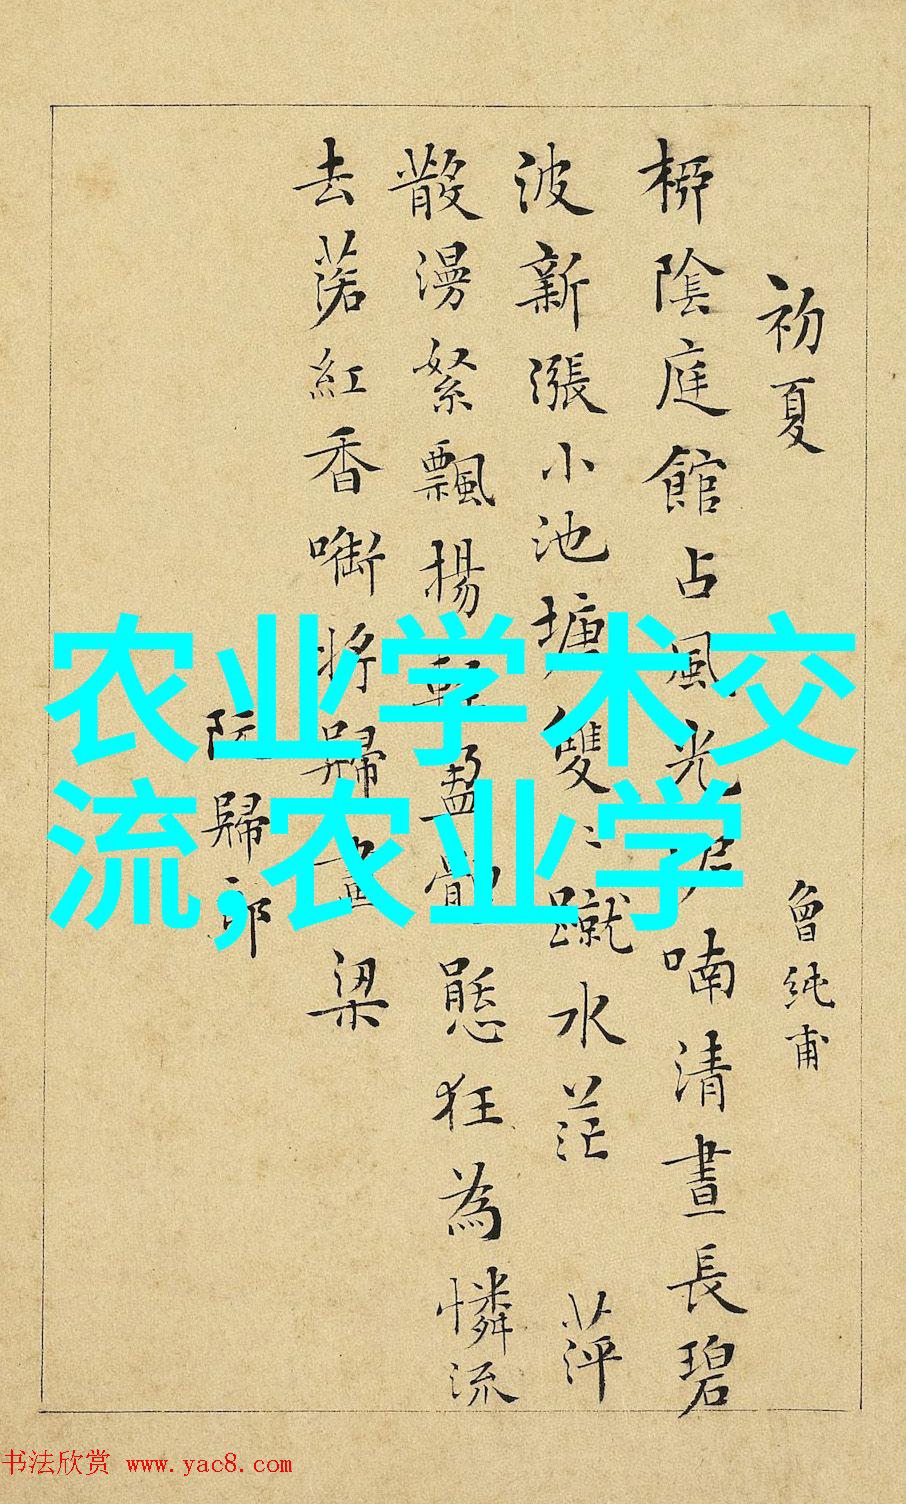 初夏
曾純甫
桺陰庭館占風光 喃清晝長碧
波新漲小池塘雙〻蹴水茫 萍
散漫絮飄揚輕盈體態狂為憐流
去落紅香啣將歸畫梁
阮歸郎
农业学术交
流,农业学
书法欣赏 www.yac8.com